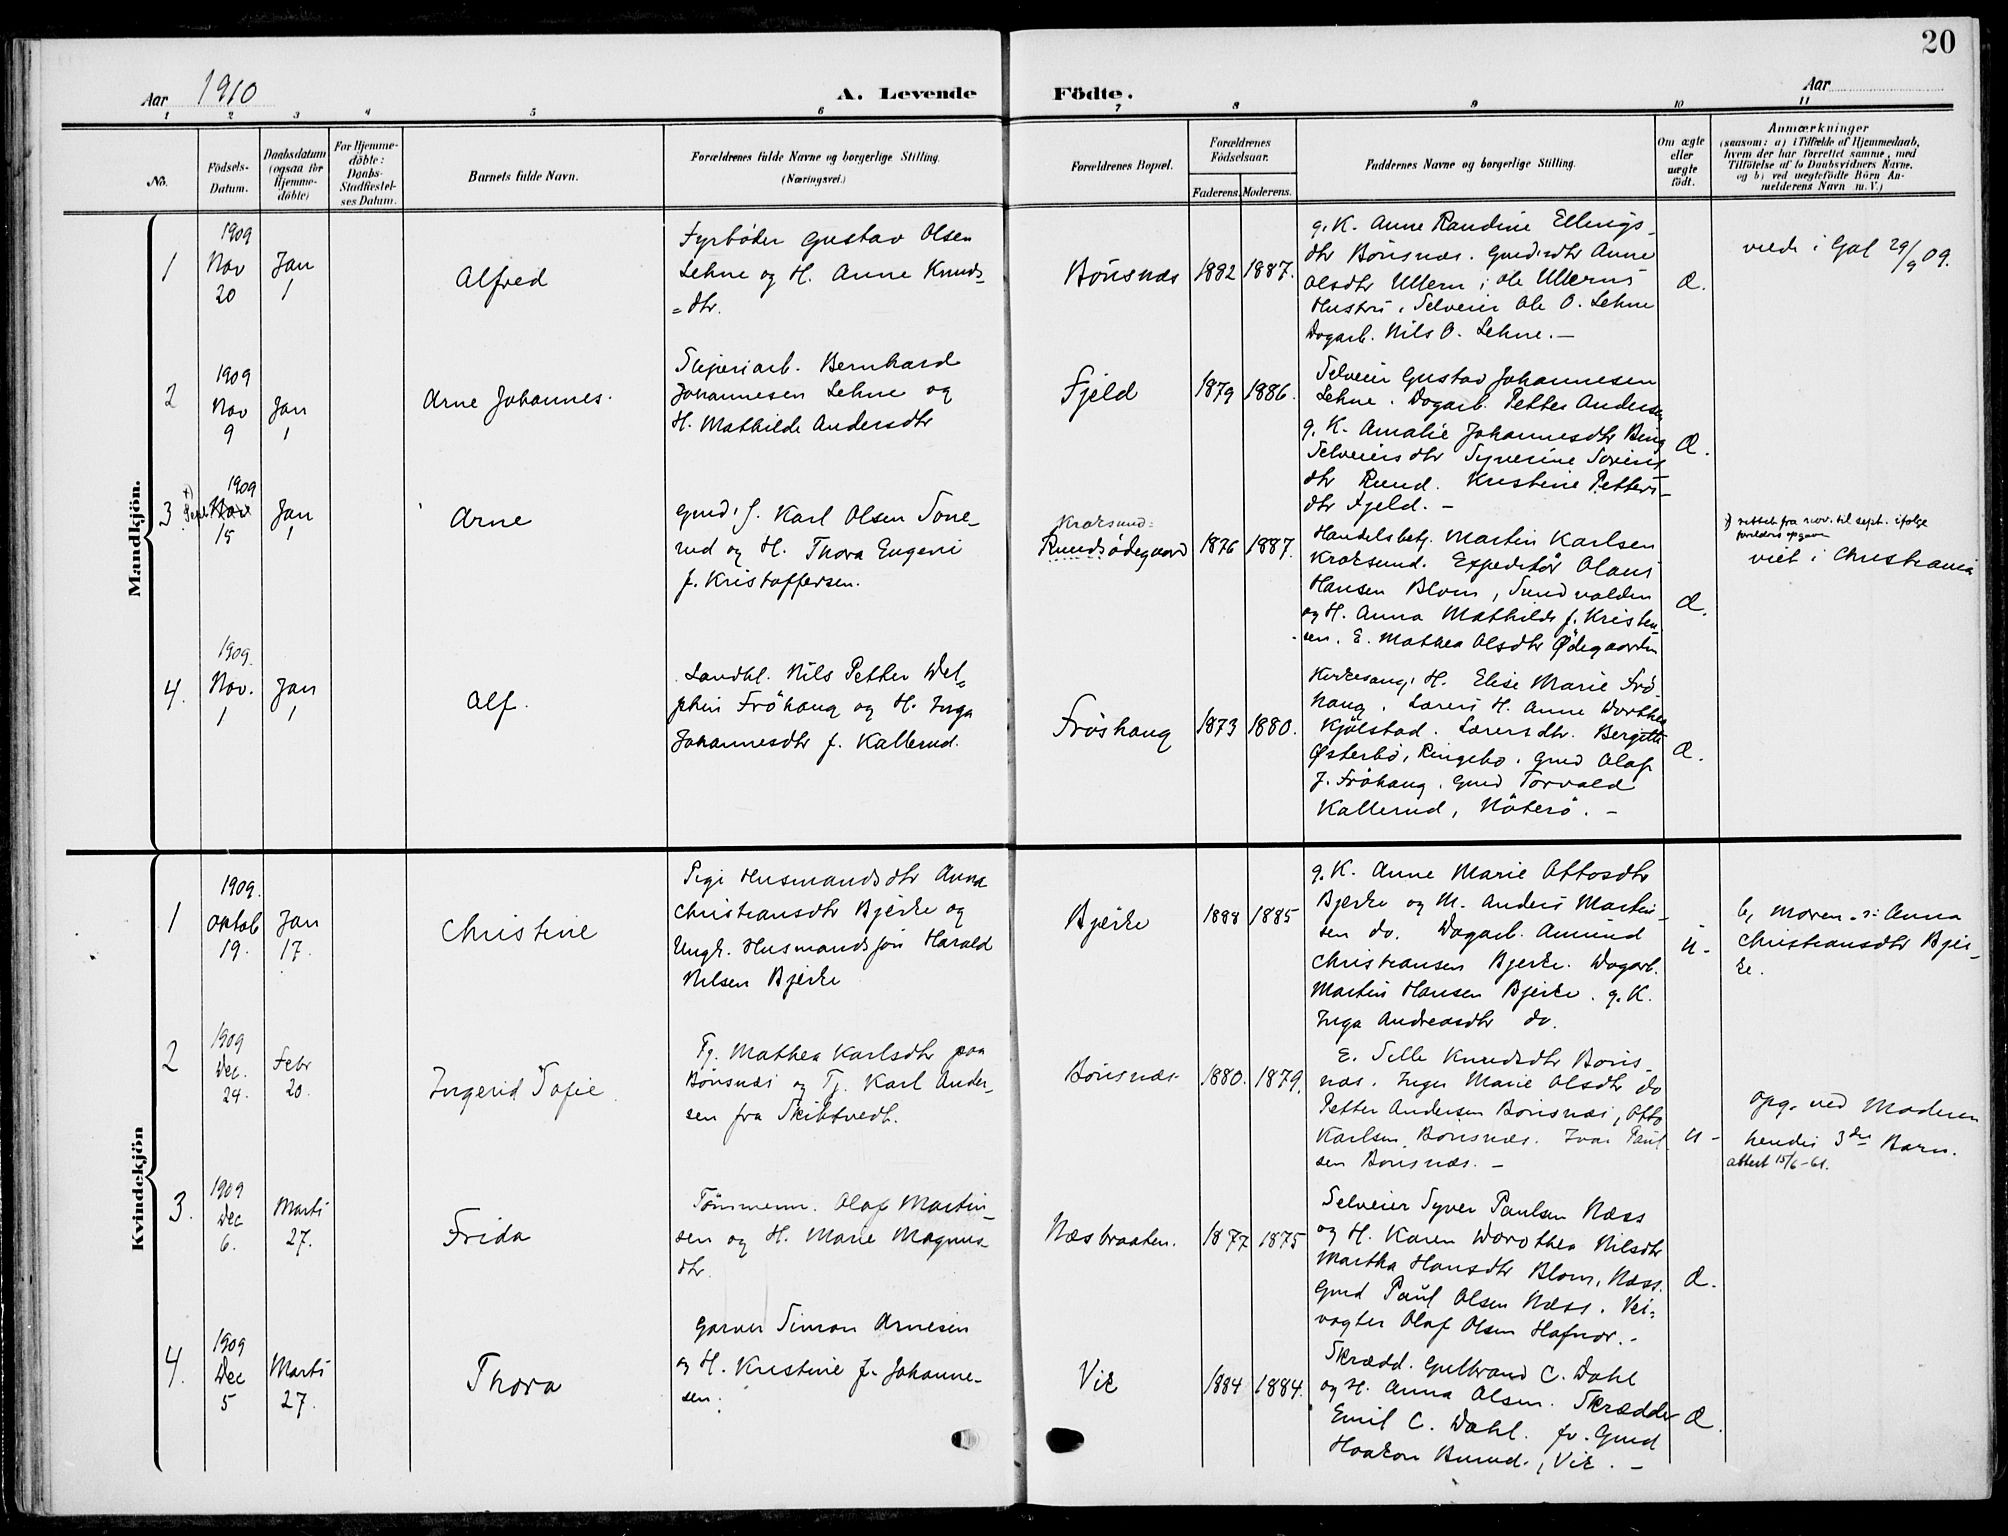 20
Aar 1910
A. Levende
Födte.
Aar
1 2 3 4 5 6 7 8 9 10 11
No.
Födsels-
Datum.
Daabsdatum
(ogsaa for
Hjemme-
döbte)
For Hjemme-
döbte:
Daabs-
Stadfæstel-
ses Datum.
Barnets fulde Navn.
Forældrenes fulde Navne og borgerlige Stilling.
(Næringsvei.)
Forældrenes Bopæl.
Forældrenes
Födselsaar.
Faderens. Moderens.
Faddernes Navne og borgerlige Stilling.
Om ægte
eller
uægte
födt.
Anmærkninger
(saasom: a) i Tilfælde af Hjemmedaab,
hvem der har forrettet samme, med
Tilföielse af to Daabsvidners Navne.
og b) ved uægtefödte Börn An-
melderens Navn m. V.)
Mandkjön.
1
1909
Nov
20
Jan
1
Alfred
Fyrböder Gustav Olsen
Lehne og H. Anne Knuds-
=dtr.
Bönsnæs
1882 1887.
g. K. Anne Randine Ellings-
dtr Bönsnæs. Gmdsdtr Anne
Olsdtr Ullern, Ole Ullerns
Hustru, Selveier Ole O. Lehne
Dagarb. Nils O. Lehne. —
Æ.
viede i Gol 29/9 09.
2
1909
Nov
9
Jan
1
Arne Johannes.
Sliperiarb. Bernhard
Johannesen Lehne og
H. Mathilde Andersdtr
Fjeld
1879 1886.
Selveier Gustav Johannesen
Lehne. Dagarb. Petter Andersen
g. K. Amalie Johannesdtr
Selveiersdtr Syverine
dtr Rund. Kristine Petters-
dtr Fjeld. —
Æ.
3
1909
x) Sept. Nov
15
Jan
1
Arne
Gmd. S. Karl Olsen Sone-
rud og H. Thora Eugeni
f. Kristoffersen.
Kroksund:
Rundsödegaard
1876 1887.
Handelsbetj. Martin Karlsen
Kroksund. Expeditör Olaus
Hansen Blom, Sundvolden
og H. Anna Mathilde f. Kristen-
sen. E. Mathea Olsdtr Ödegaarden
Æ.
x) rettet fra nov. til sept. ifölge
foreldres opgave
viet i Christiania
4.
1909.
Nov.
1
Jan
1
Alf.
Landhl. Nils Petter Del-
phin Fröhaug og H. Inga
Johannesdtr f. Kallerud.
Fröshaug
1873 1880.
Kirkesang. H. Elise Marie Frö-
haug, Lærers H. Anne Dorthea
Kjölstad. Lærersdtr. Bergitte
Østerbö, Ringebo. Gmd Olaf
J. Fröhaug. Gmd Torvald
Kallerud, Nöterö. —
Æ.
Kvindekjön
1
1909.
Oktob
19.
Jan
17.
Christine
Pige Husmandsdtr Anna
Christiansdtr Bjerke og
Ungk. Husmandssön Harald
Nilsen Bjerke
Bjerke
1888 1885
g. K. Anne Marie Ottosdtr
Bjerke og M. Anders Martin-
sen do. Dagarb. Amund
Christiansen Bjerke. Dagarb.
Martin Hansen Bjerke. g. K.
Inga Andreasdtr do.
u.
b, moren : Anna
Christiansdtr Bjer-
ke.
2
1909
Dec.
24.
Febr
20.
Ingerid Sofie.
Tj. Mathea Karlsdtr paa
Bönsnæs og Tj. Karl Ander-
sen fra Skibtvedt.
Bönsnæs
1880. 1879.
E. Sille Knudsdtr Böns-
næs. Inger Marie Olsdtr do
Petter Andersen Bönsnæs, Otto
Karlsen Bönsnæs. Ivar Paul-
sen Bönsnæs. —
u-
opg. ved Moderen
hendes 3de Barn.
attest 15/6-61.
3.
1909
Dec
6.
Marts
27.
Frida
Tömmerm. Olaf Martin-
sen og H. Marie Magnus-
dtr.
Næsbraaten.
1877 1875
Selveier Syver Paulsen Næss
og H. Karen Dorothea Nilsdtr
Martha Hansdtr Blom, Næss.
Gmd Paul Olsen Næss. Vei-
vogter Olaf Olsen Hafnor. -
Æ.
4.
1909
Dec
5
Marts
27.
Thora
Garver Simon Arnesen
og H. Kristine f. Johanne-
sen.
Vik
1884 1884.
Skrædd. Gulbrand C. Dahl
og H. Anna Olsen. Skrædder
Emil C. Dahl. fv. Gmd
Haakon Burud, Vik. —
Æ.